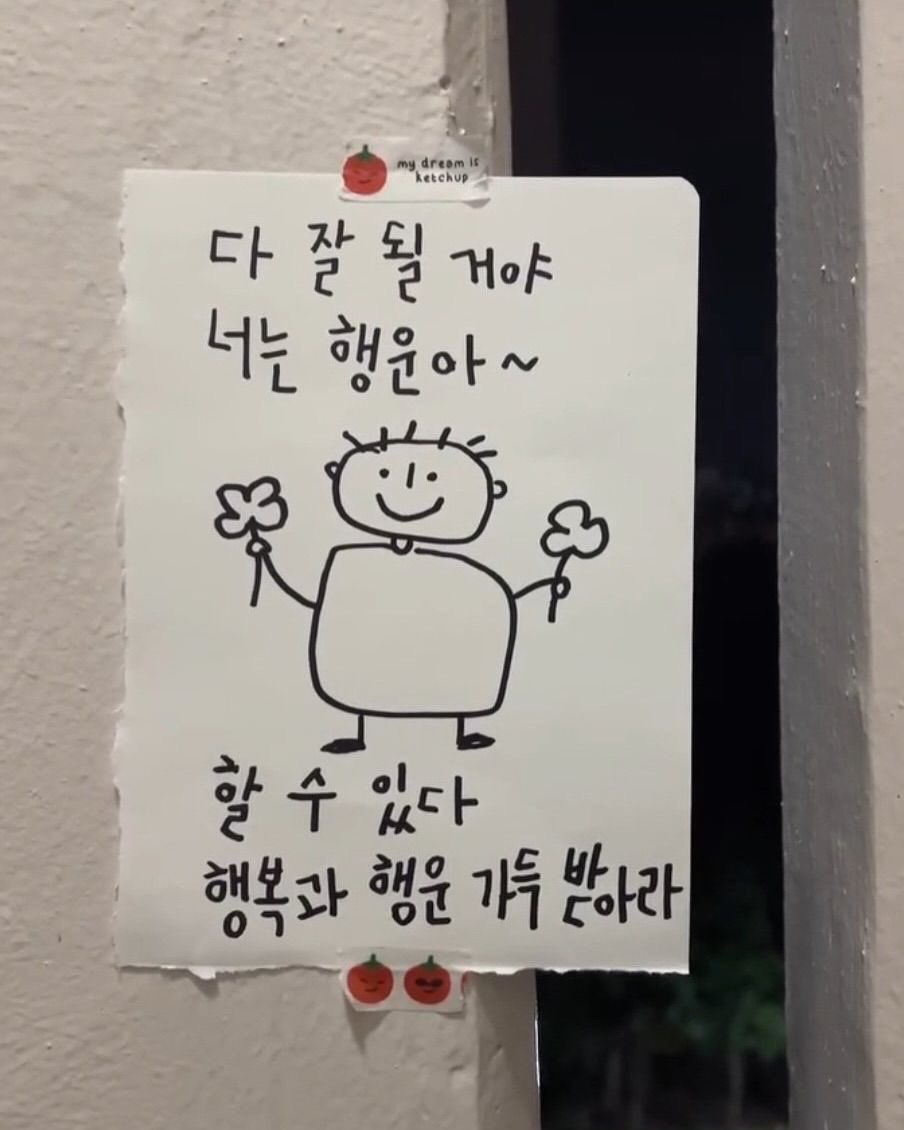 my dream is
ketchup
다 잘 될 거야
너는 행운아~
할 수 있다
행복과 행운 가득 받아라